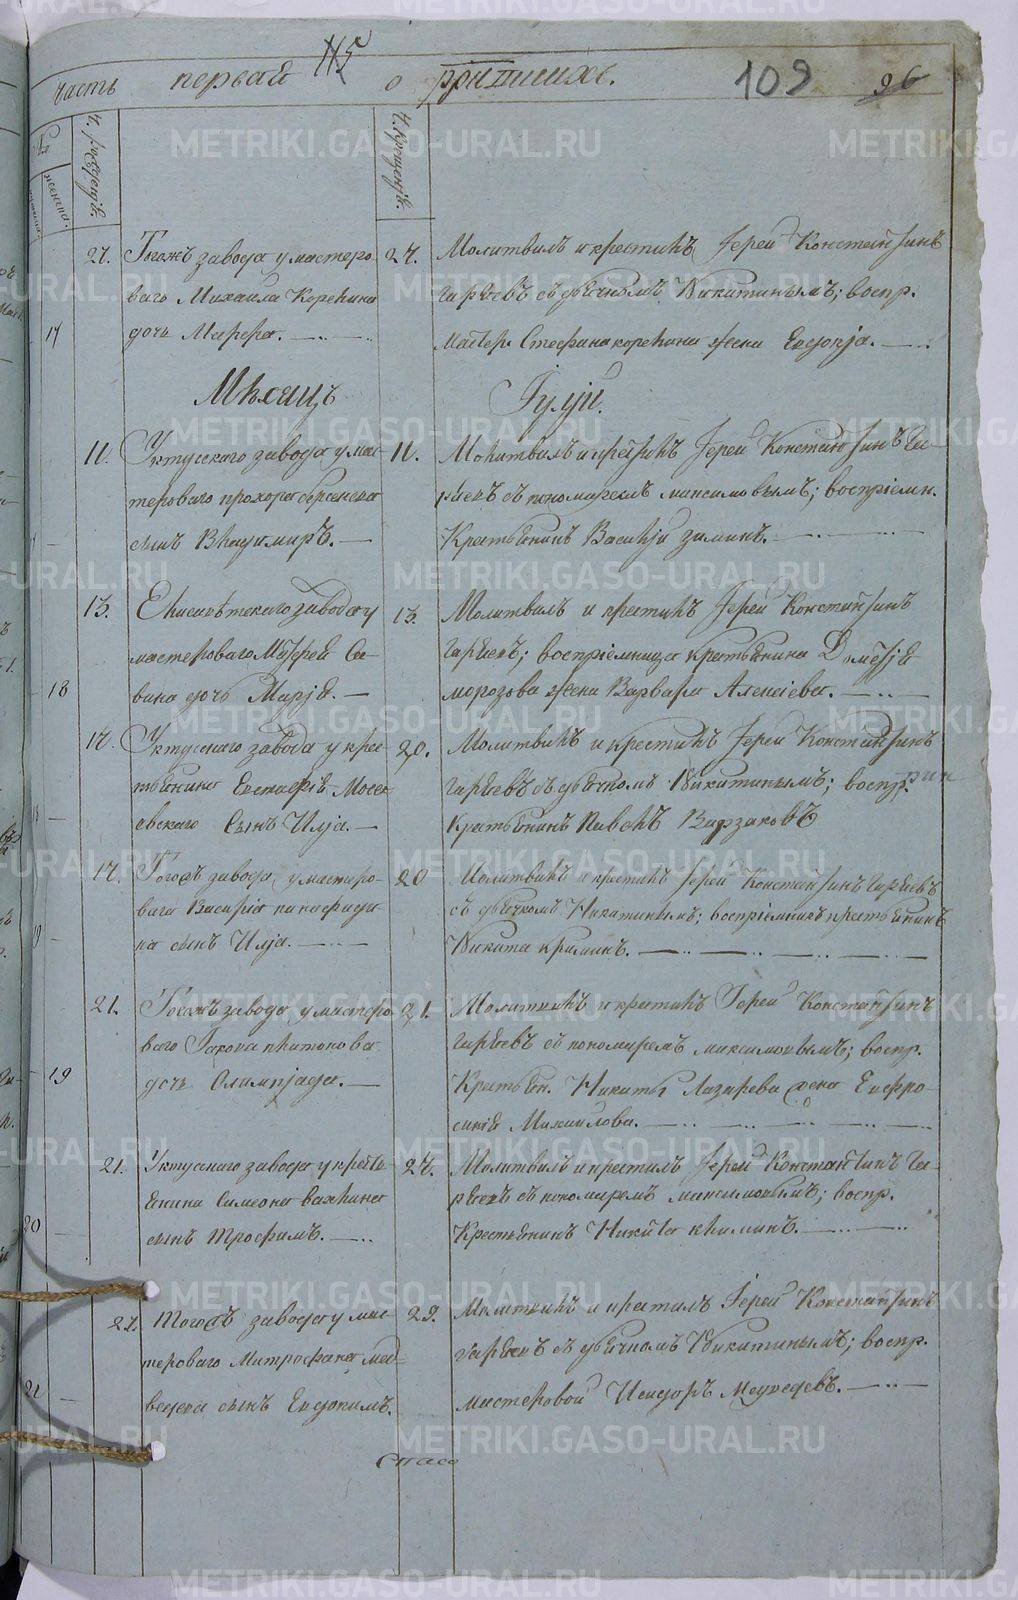 Часть первая о родившихся.
115
109
96
Ч. рожденiя.
Ч. Крещенiя.
женска.
24. Тогожъ завода у мастеро-
ваго Михаила Корекина
17 дочь Марфа.
24. Молитвилъ и крестилъ Iерей Константинъ
Гаряевъ съ дьячкомъ Никитинымъ; воспр.
мастер. Стефана Корекина жена Евдокiя.
Мѣсяцъ Iулiй.
11. Уктусскаго завода у мас-
тероваго Прохора Берсенева
сынъ Владимиръ.
11. Молитвилъ и крестилъ Iерей Константинъ Га-
ряевъ съ пономаремъ Максимовымъ; воспрiемн.
Крестьянинъ Василiй Зиминъ.
13. Елисаветскаго завода у
мастероваго Матфея Са-
18 вина дочь Марiя.
13. Молитвилъ и крестилъ Iерей Константинъ
Гаряевъ; воспрiемница крестьянина Дометiя
Морозова жена Варвара Алексiева.
17. Уктусскаго завода у крес-
тьянина Евстафiя Мосев-
евскаго Сынъ Илiа.
20. Молитвилъ и крестилъ Iерей Константинъ
Гаряевъ съ дьячкомъ Никитинымъ; воспр.
Крестьянинъ Павелъ
17. Тогожъ завода у мастеро-
ваго Василiя Панафиди-
19 на сынъ Илiа.
20 Молитвилъ и крестилъ Iерей Константинъ Гаряевъ
съ дьячкомъ Никитинымъ; воспрiемникъ крестьянинъ
Никита Климинъ.
21. Тогожъ завода у мастеро-
ваго Iакова Платонова
19 дочь Олимпiада.
21. Молитвилъ и крестилъ Iерей Константинъ
Гаряевъ съ пономаремъ Максимовымъ; воспр.
Крестьян. Никиты Лазарева жена Евфро-
синiя Михаилова.
21. Уктусскаго завода у кресть-
янина Симеона Вахлина
20 сынъ Трофимъ.
24. Молитвилъ и крестилъ Iерей Константинъ Га-
ряевъ съ пономаремъ Максимовымъ; воспр.
Крестьянинъ Никита Климинъ.
27. Тогожъ завода у мас-
тероваго Митрофана Мед-
ведева сынъ Евдокимъ.
29. Молитвилъ и крестилъ Iерей Константинъ
Гаряевъ съ дьячкомъ Никитинымъ; воспр.
мастеровой Исидоръ Медведевъ.
Спасо
METRIKI.GASO-URAL.RU